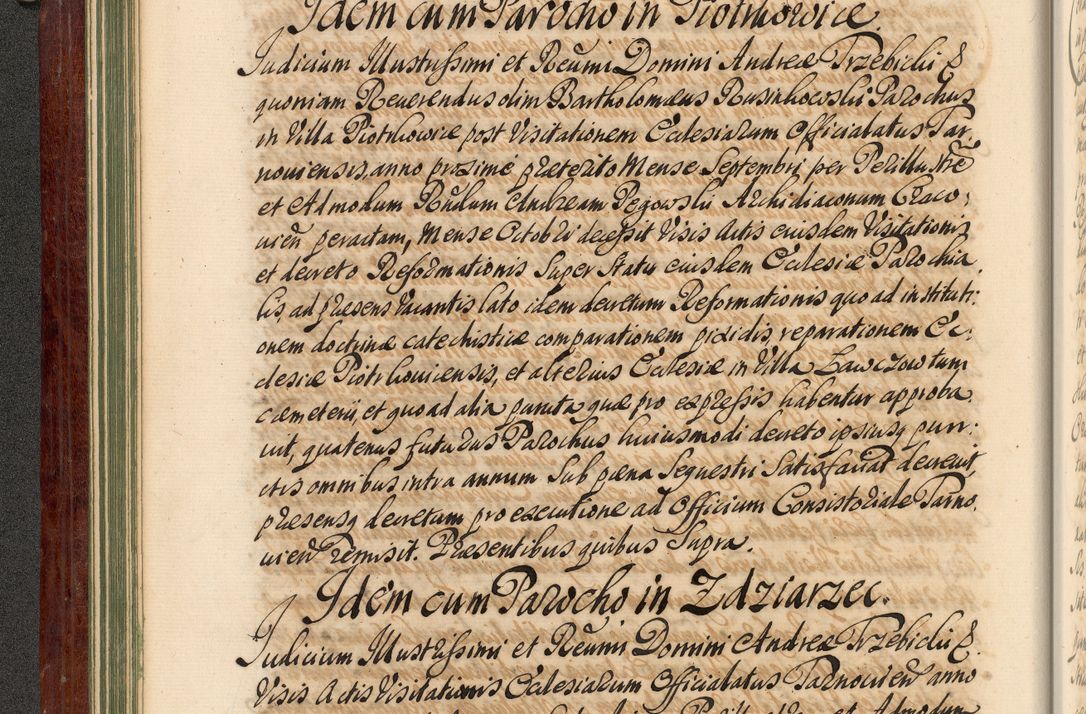 Idem cum Parocho in Piotrkowice.
Judicium Illustrissimi et Reũmi Domini Andreæ Trzebicki &
quoniam Reuerendus olim Bartholomæus Rusinkowski Parochus
in Villa Piotrkowice post Visitationem Ecclesiarum Officialatus Tar,
nouiensis, anno proximè præterito Mense Septembri, per Perillustrẽ
et Admodum Rñdum Andream Pęgowski Archidiaconum Craco,
uieñ peractam, Mense Octobri decessit Visis Actis eiusdem Visitationis
et decreto Reformationis Super Statu eiusdem Ecclesiæ Parochia,
lis, ad præsens Vacantis lato idem decretum Reformationis quo ad instituti:
onem doctrinæ catechisticæ comparationem pixidis, reparationem Ec:
clesiæ Piotrkouiensis, et alterius Ecclesiæ in Villa Lawczow tum
cæmeterii, et quo ad alia puncta quæ pro expressis habentur approba
uit, quatenus futurus Parochus huiusmodi decreto ipsiusq punc:
ctis omnibus intra annum Sub pæna Sequestri Satisfaciat decreuit,
præsensq decretum pro executione ad Officium Consistoriale Tarno,
uieñ remisit. Præsentibus quibus Supra.
Idem cum Parocho in Zdziarzec.
Judicium Illustrissimi et Reũmi Domini Andreæ Trzebicki &.
Visis Actis Visitationis Ecclesiarum Officialatus Tarnouieñ anno